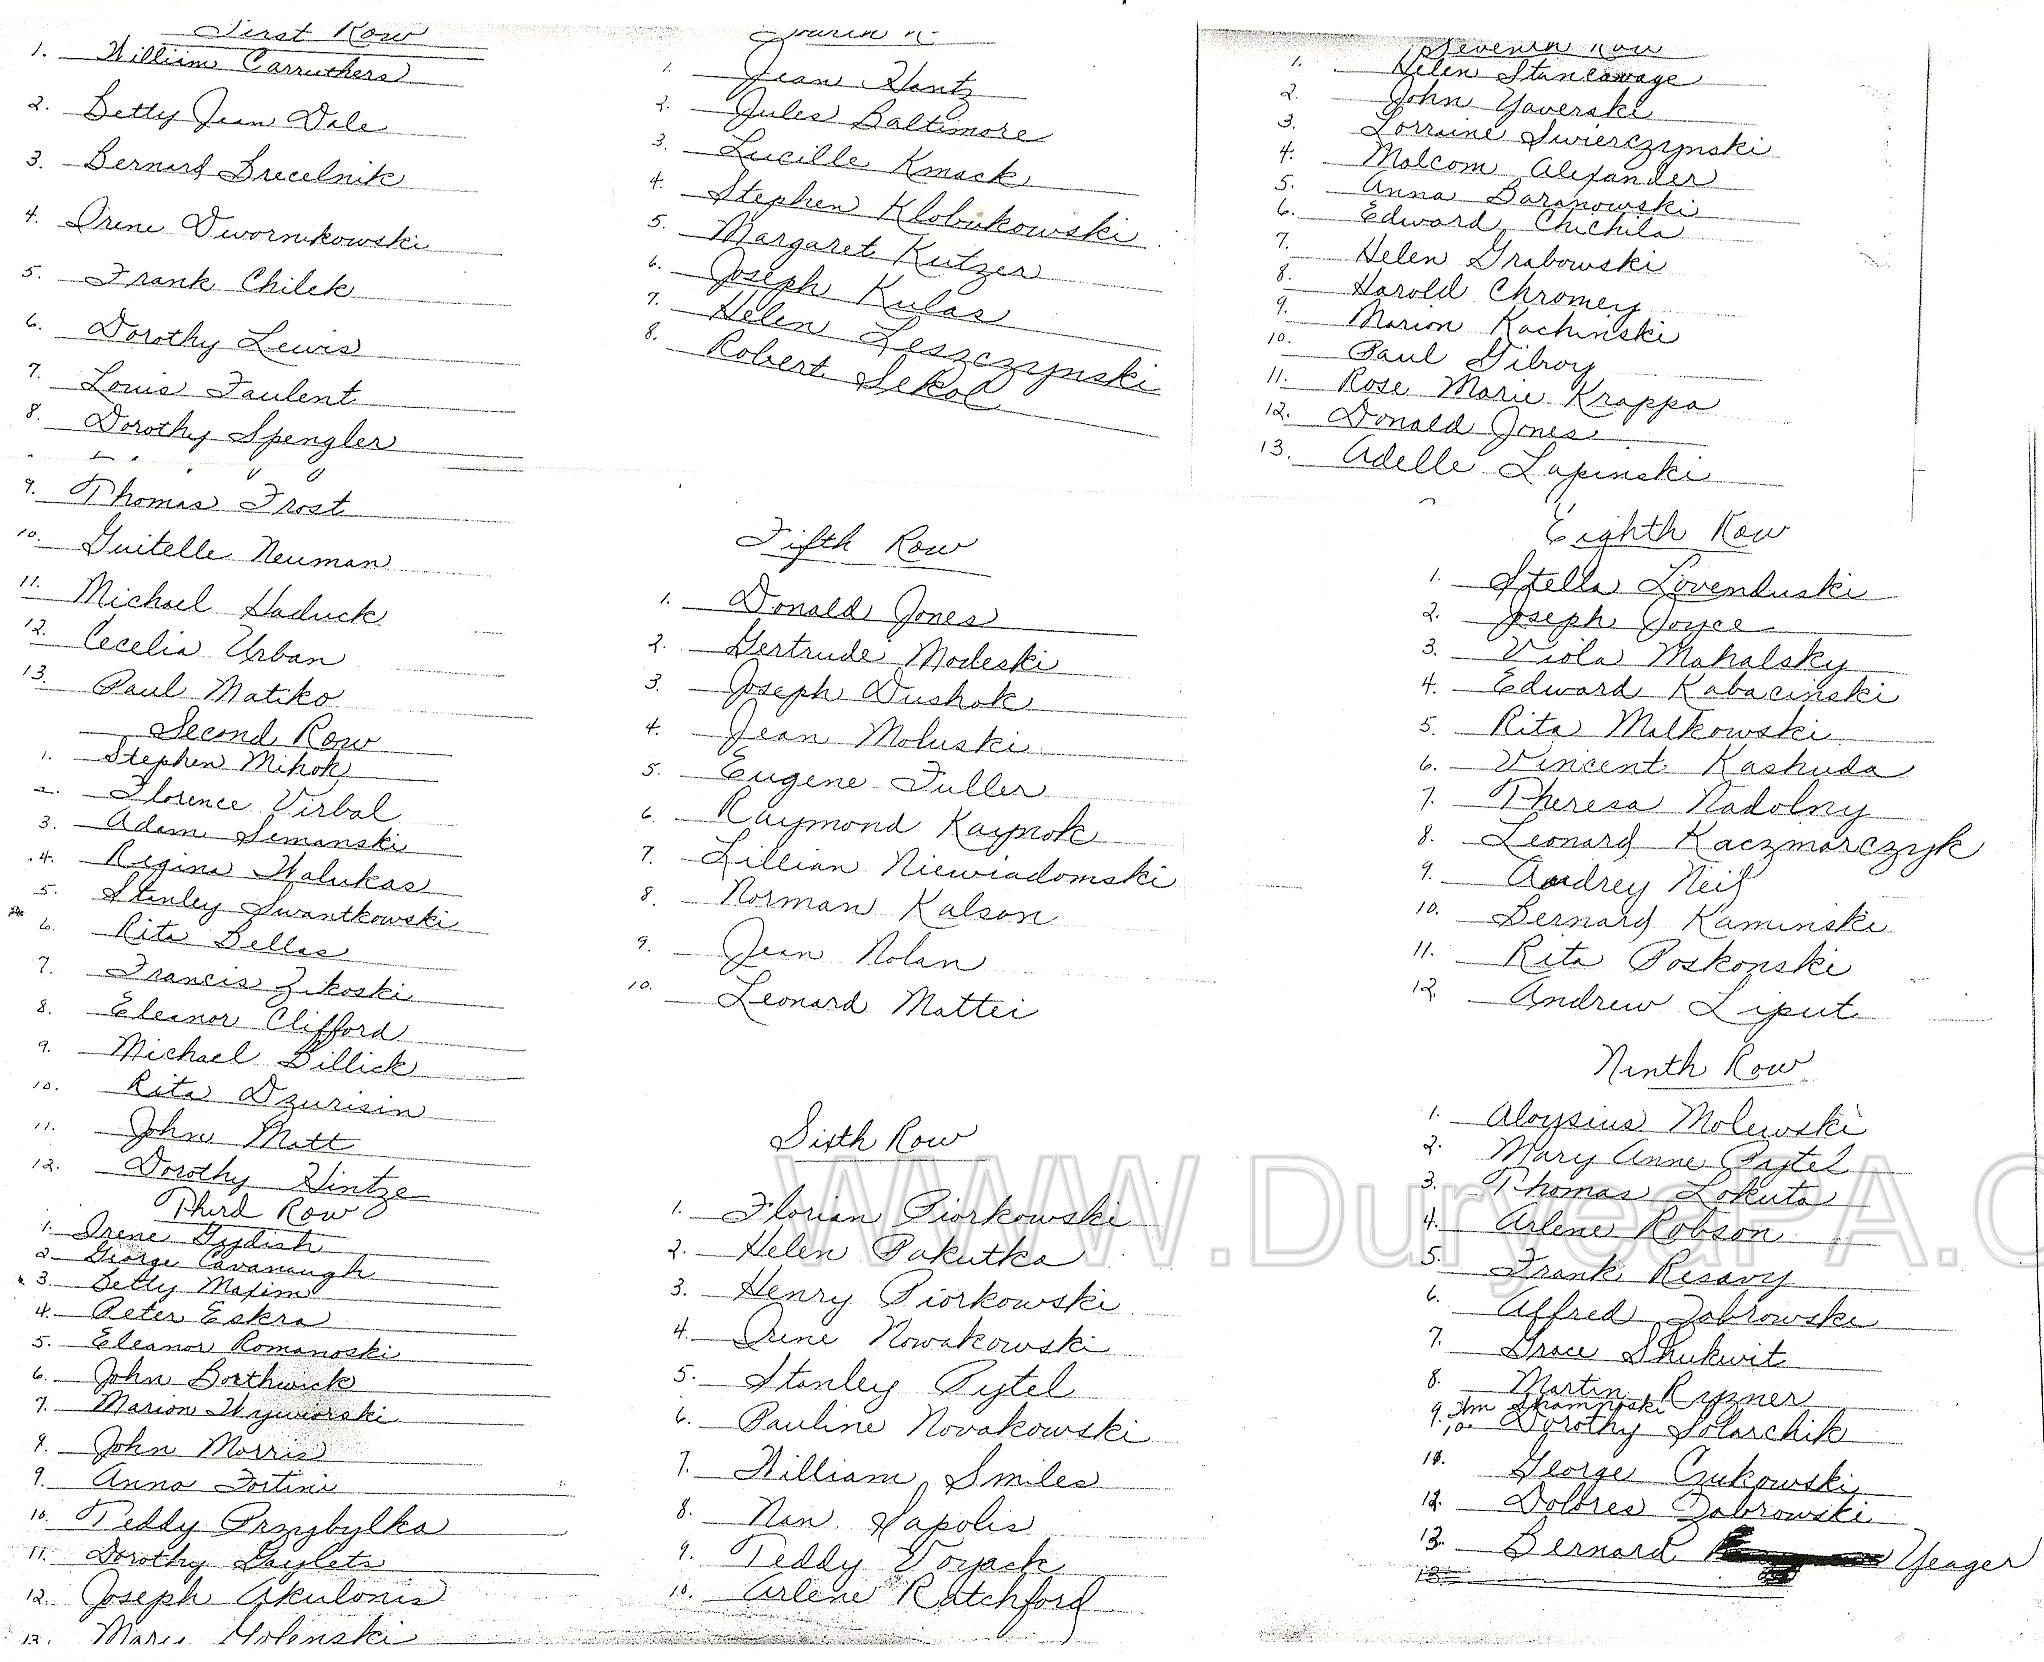 First Row
1. William Carruthers
2. Betty Jean Dale
3. Bernard Brecelnik
4. Irene Dwornikowski
5. Frank Chilek
6. Dorothy Lewis
7. Louis Faulent
8. Dorothy Spengler
9. Thomas Frost
10. Guitelle Neuman
11. Michael Haduck
12. Cecelia Urban
13. Paul Matiko
Second Row
1. Stephen Mihok
2. Florence Virbal
3. Adam Semanski
4. Regina Walukas
5. Stanley Swantkowski
6. Rita Bellas
7. Francis Zikoski
8. Eleanor Clifford
9. Michael Billick
10. Rita Dzurisin
11. John Matt
12. Dorothy Hintze
Third Row
1. Irene Gydish
2. George Cavanaugh
3. Betty Maxim
4. Peter Eskra
5. Eleanor Romanoski
6. John Borthwick
7. Marion Wywiorski
8. John Morris
9. Anna Fortini
10. Teddy Przybylka
11. Dorothy Daylets
12. Joseph Akulonis
13. Marie Golenski
Fourth R
1. Jean Hantz
2. Jules Baltimore
3. Lucille Kmack
4. Stephen Klobukowski
5. Margaret Kutzer
6. Joseph Kulas
7. Helen Leszczynski
8. Robert Sekol
Fifth Row
1. Donald Jones
2. Gertrude Modeski
3. Joseph Dushok
4. Jean Moluski
5. Eugene Fuller
6. Raymond Kaynok
7. Lillian Niewiadomski
8. Norman Kalson
9. Jean Nolan
10. Leonard Mattei
Sixth Row
1. Florian Piorkowski
2. Helen Pakutka
3. Henry Piorkowski
4. Irene Nowakowski
5. Stanley Pytel
6. Pauline Novakowski
7. William Smiles
8. Nan Sapolis
9. Teddy Vojack
10. Arlene Ratchford
Seventh Row
1. Helen Stancavage
2. John Yaverski
3. Lorraine Swierczynski
4. Malcom Alexander
5. Anna Baranowski
6. Edward Chichila
7. Helen Grabowski
8. Harold Chromey
9. Marion Kachinski
10. Paul Gilroy
11. Rose Marie Krappa
12. Donald Jones
13. Adelle Lapinski
Eighth Row
1. Stella Lovenduski
2. Joseph Joyce
3. Viola Mahalsky
4. Edward Kabacinski
5. Rita Malkowski
6. Vincent Kashuda
7. Theresa Nadolny
8. Leonard Kaczmarczyk
9. Audrey Neif
10. Bernard Kaminski
11. Rita Poskonski
12. Andrew Liput
Ninth Row
1. Aloysius Molewski
2. Mary Anne Pytel
3. Thomas Lokuta
4. Arlene Robson
5. Frank Resavy
6. Alfred Zabrowski
7. Grace Shukwit
8. Martin Ryzner
9. Wm
10. Dorothy Solarchik
11. George Czukowski
12. Dolores Zabrowski
13. Bernard Yeager
13
WWW.DuryeaPA.C